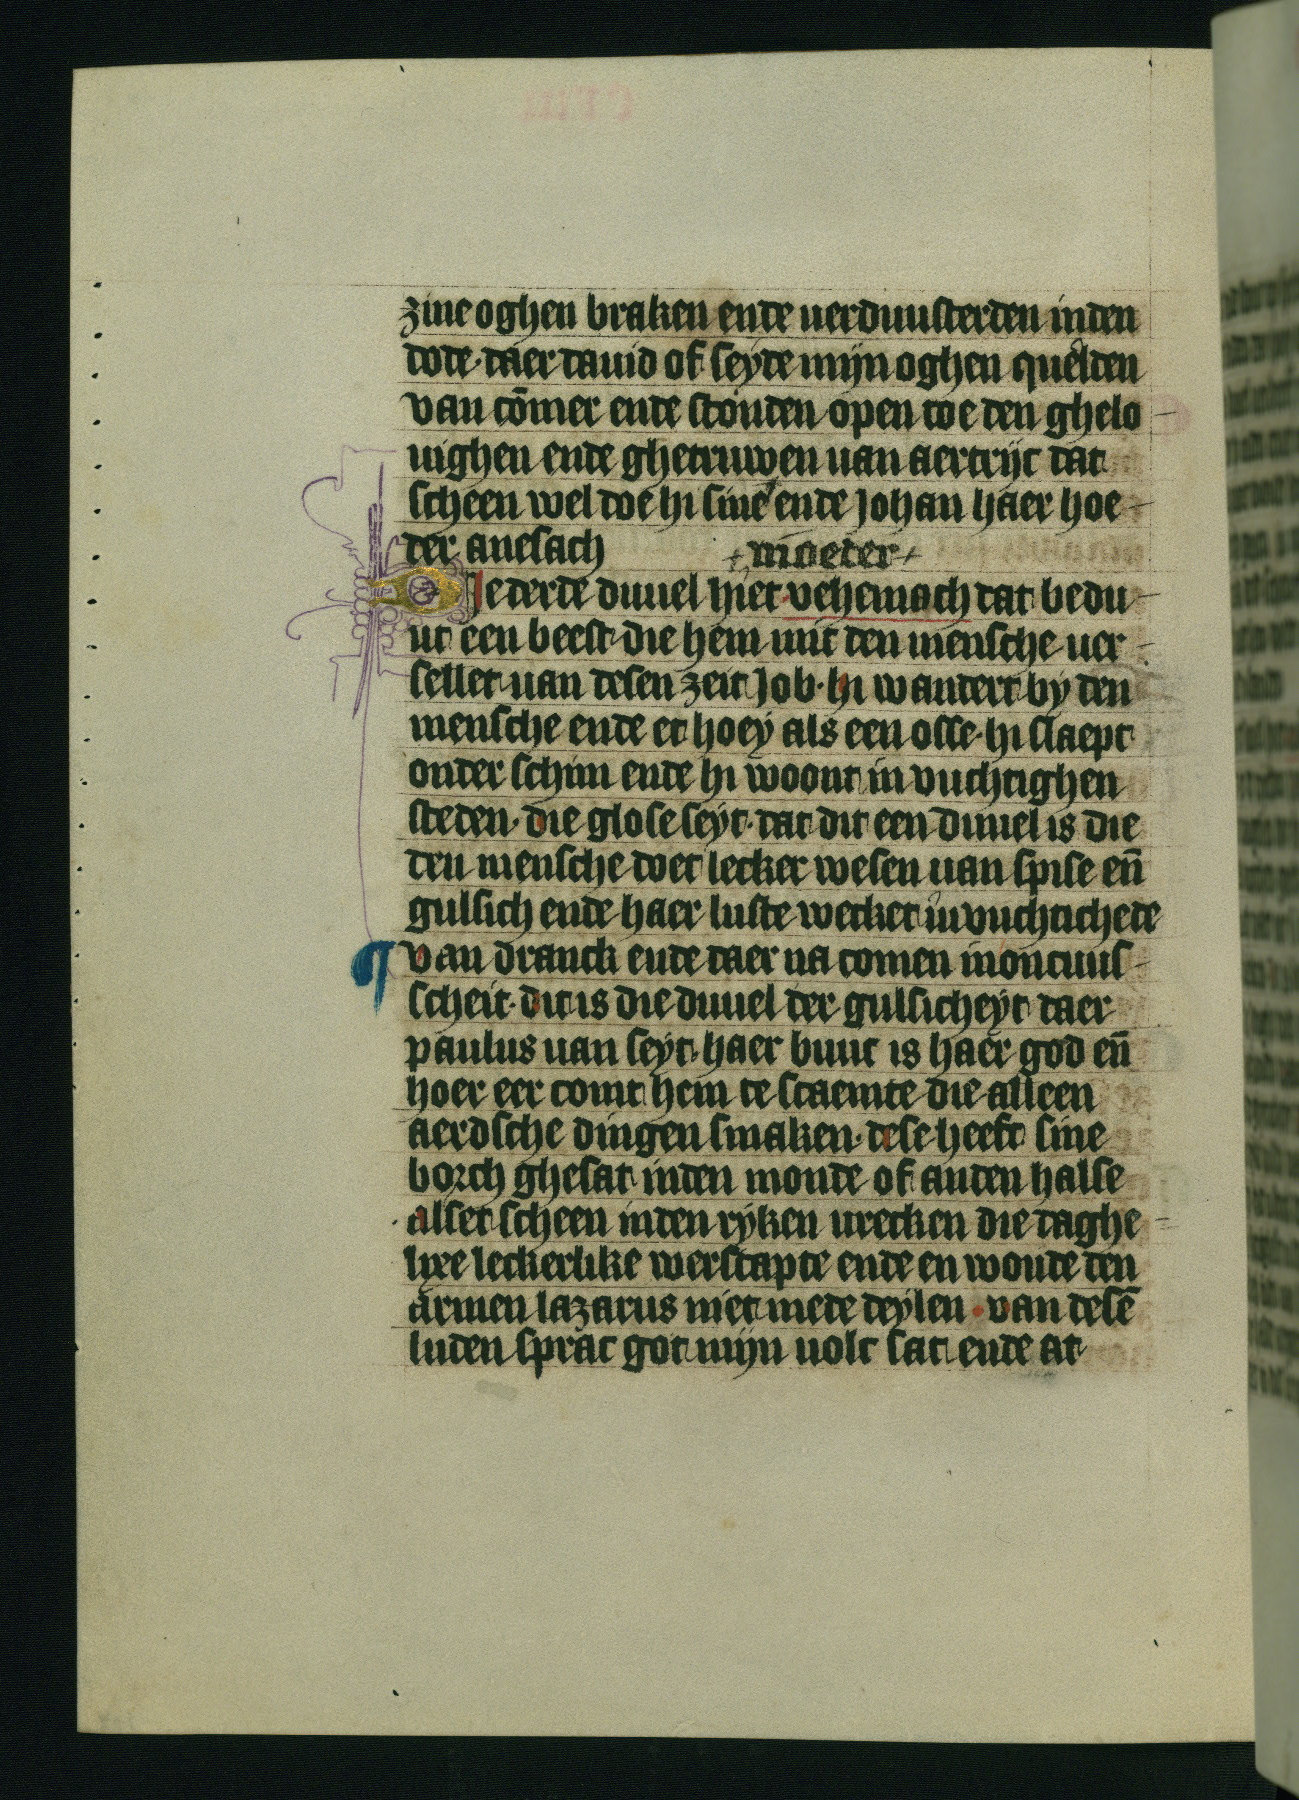 zine oghen braken ende uerduusterden inden
dode· daer dauid of seyde mijn oghen quelden
van cōmer ende stonden open toe den ghelo
uighen ende ghetruwen uan aertrijc dat
scheen wel doe hi sine ende Johan haer hoe
der anesach moeder
Ie derde duuel hiet vehemoch dat bedu
ut een beest die hem mit den mensche uer
sellet uan desen zeit Job· hi wandert by den
mensche ende et hoey als een osse· hi slaept
onder schim ende hi woont in vuchtighen
steden· die glose seyt· dat dit een duuel is die
den mensche doet lecker wesen uan spise eñ
gulsich ende haer luste wecket in vuchtichede
van dranck ende daer na comen in oncuus
scheit· dit is die duuel der gulsicheyt daer
paulus uan seyt· haer buuc is haer god eñ
hoer eer comt hem te scaemte die alleen
aerdsche dingen smaken· dese heeft sine
borch ghesat inden monde of anden halse
alset scheen inden ryken urecken die daghe
lixe leckerlike werscapte ende en woude den
armen lazarus niet mede deylen · van desē
luden sprac got mijn uolc sat ende at